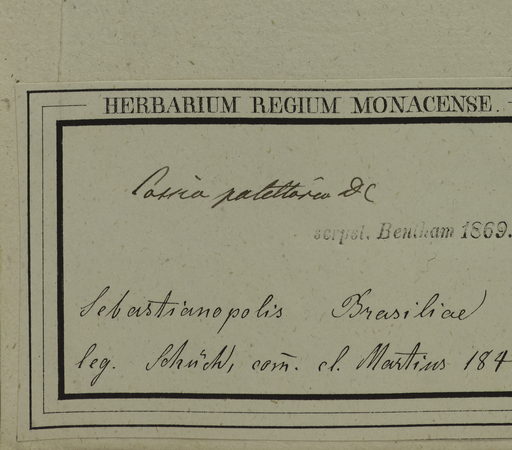 HERBARIUM REGIUM MONACENSE.
Cassia patellaria DC
scrpst. Bentham 1869.
Sebastianopolis Brasiliae
leg. Schüch, com̄. cl. Martius 184